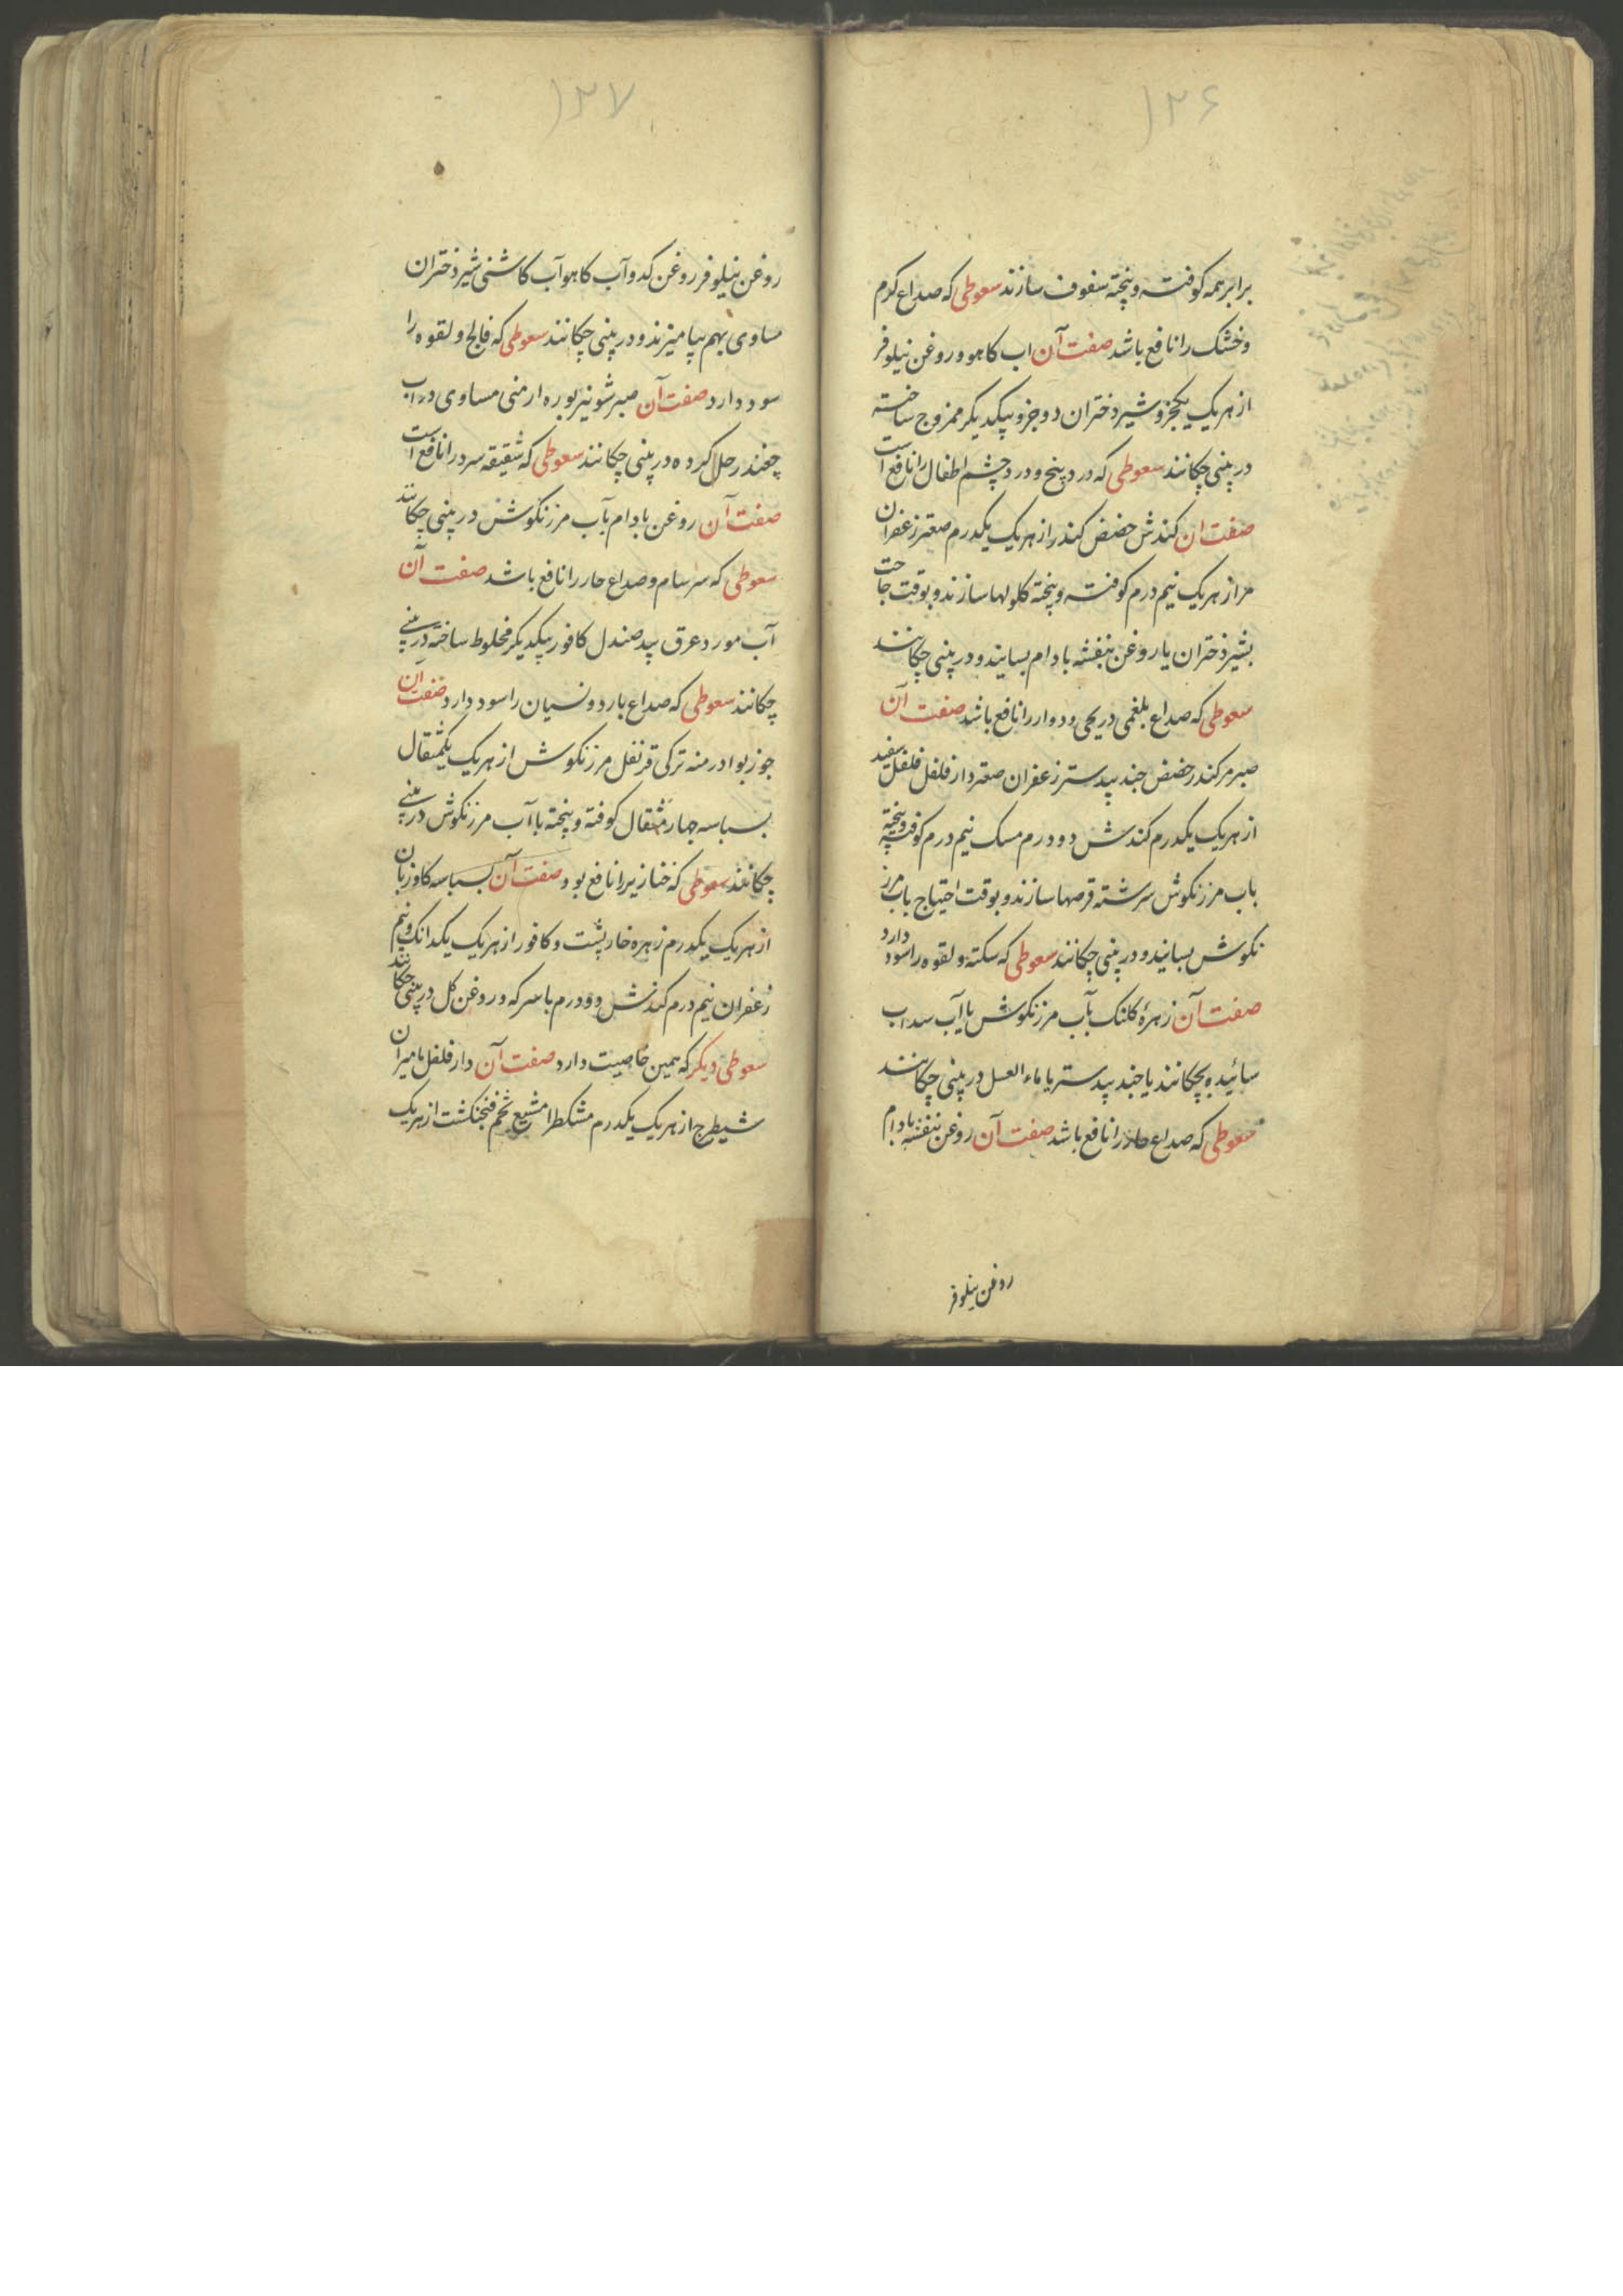 ۱۲۶
برابر همه کوفته و پخته سفوف سازند سعوطی که صداع کرم
و خشک را نافع باشد صفت آن اب کاهو و روغن نیلوفر
از هر یک یکجزو شیر دختران دو جزو بیکدیکر ممزوج ساخته
در بینی چکانند سعوطی که درد پنج و درد چشم اطفال را نافع است
صفت ان کندش حضض کندر از هر یک یکدرم صعتر زعفران
مر از هر یک نیم درم کوفته و پخته کلولها سازند و بوقت حاجت
بشیر دختران یا روغن بنفشه بادام بسایند و در بینی چکانند
سعوطی که صداع بلغمی و ریحی و دوار را نافع باشد صفت آن
صبر مر کندر حضض جند بیدستر زعفران صعتر دار فلفل فلفل سفید
از هر یک یکدرم کندش دو درم مسک نیم درم کوفته و پخته
باب مرزنکوش سرشته قرصها سازند و بوقت احتیاج باب مرز
نکوش بسانید و در بینی چکانند سعوطی که سکته و لقوه را سود دارد
صفت آن زهرهٔ کلنک بآب مرزنکوش یا آب سداب
سائیده بچکانند یا جند بیدستر یا ماء العسل در بینی چکانند
سعوطی که صداع حار را نافع باشد صفت آن روغن بنفشه بادام
روغن نیلوفر
۱۲۷
روغن نیلوفر روغن کدو آب کاهو آب کاشنی شیر دختران
مساوی بهم بیامیزند و در بینی چکانند سعوطی که فالج و لقوه را
سود دارد صفت آن صبر شونیز بوره ارمنی مساوی در آب
چغندر حل کرده در بینی چکانند سعوطی که شقیقه سرد را نافع است
صفت آن روغن بادام بآب مرزنکوش در بینی چکانند
سعوطی که سرسام و صداع حار را نافع باشد صفت آن
آب مورد عرق بید صندل کافور بیکدیکر مخلوط ساخته در بینی
چکانند سعوطی که صداع بارد و نسیان را سود دارد صفت ان
جوز بوا درمنه ترکی قرنفل مرزنکوش از هر یک یکمثقال
بسباسه چهار مثقال کوفته و پخته با آب مرزنکوش در بینی
چکانند سعوطی که خنازیر را نافع بود صفت آن بسباسه کاوزبان
از هر یک یکدرم زهره خارپشت و کافور از هر یک یکدانک و نیم
زعفران نیم درم کندش دو درم با سرکه و روغن کل در بینی چکانند
سعوطی دیکر که همین خاصیت دارد صفت آن دار فلفل مامیران
شیطرج از هر یک یکدرم مشکطرامشیع تخم فنجنکشت از هر یک